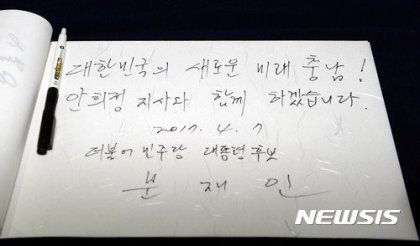 대한민국의 새로운 미래 충남!
안희정 지사와 함께 하겠습니다.
2017. 4. 7
더불어 민주당 대통령 후보
문 재 인
NEWSIS